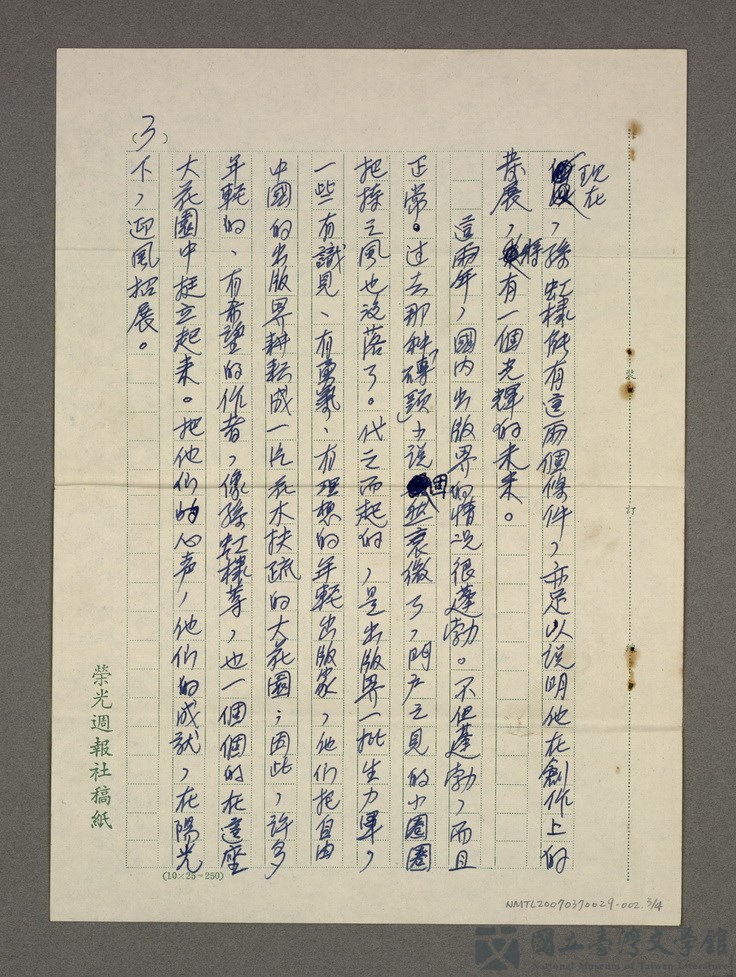 (3)
現在，孫虹樣能有這兩個條件，亦足以說明他在創作上的
發展，將有一個光輝的未來。
這兩年，國內出版界的情況很蓬勃。不但蓬勃，而且
正常。过去那种「磚頭」小說固然衰微了，門户之見的小圈圈
把持之風也没落了。代之而起的，是出版界一批生力軍，
一些有識見、有勇氣、有理想的年輕出版家，他们把自由
中國的出版界耕耘成一片花木扶疏的大花園；因此，許多
年輕的、有希望的作者，像孫虹樣等，也一個個的在這座
大花園中挺立起来。把他们的心声，他们的成就，在陽光
下，迎風招展。
裝
訂
榮光週報社稿紙
(10×25=250)
NMTL20070370029-002.3/4
國立臺灣文學館
National Museum of Taiwan Literature